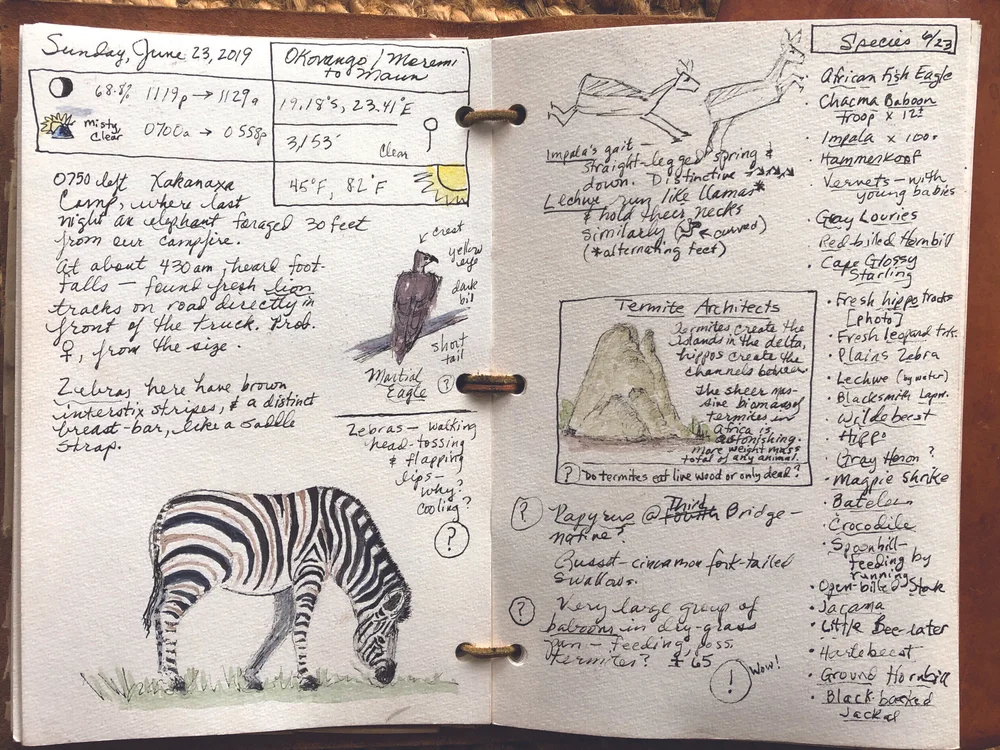 Sunday, June 23, 2019
Okovango / Moremi
to Maun
68.8% 1119p → 1129a
misty
clear 0700a → 0558p
19.18°S, 23.41°E
3153' Clear
45°F, 82°F
0750 left Xakanaxa
Camp, where last
night an elephant foraged 30 feet
from our campfire.
At about 430am, heard foot-
falls — found fresh lion
tracks on road directly in
front of the truck. Prob.
♀, from the size.
Zebras here have brown
interstix stripes, & a distinct
breast-bar, like a saddle
strap.
crest
yellow
eye
dark
bill
short
tail
Martial
Eagle ?
Zebras — walking
head-tossing
& flapping
lips —
why?
cooling?
?
Impala's gait —
straight-legged spring &
down. Distinctive
Lechwe run like llamas*
& hold their necks
similarly ( curved)
(*alternating feet)
Termite Architects
Termites create the
islands in the delta,
hippos create the
channels between
The sheer mas-
sive biomass of
termites in
Africa is
astonishing.
more weight mass
total of any animal.
? Do termites eat live wood or only dead?
? Papyrus @ Third Fourth Bridge —
native?
Russet-cinnamon fork-tailed
swallows.
? Very large group of
baboons in dry-grass
— feeding, poss.
termites? ± 65
! Wow!
Species 6/23
African Fish Eagle
• Chacma Baboon
troop x 12±
• Impala x 100+
• Hammerkopf
• Vervets — with
young babies
• Gray Louries
• Red-billed Hornbill
• Cape Glossy
Starling
• Fresh hippo tracks
[photo]
• Fresh leopard trk.
• Plains Zebra
• Lechwe (by water)
• Blacksmith Lapw.
• Wildebeest
• Hippo
• Gray Heron ?
• Magpie Shrike
• Bateleur
• Crocodile
• Spoonbill —
feeding by
running
• Open-billed Stork
• Jacana
• Little Bee-eater
• Hartebeest
• Ground Hornbill
• Black backed
Jackal